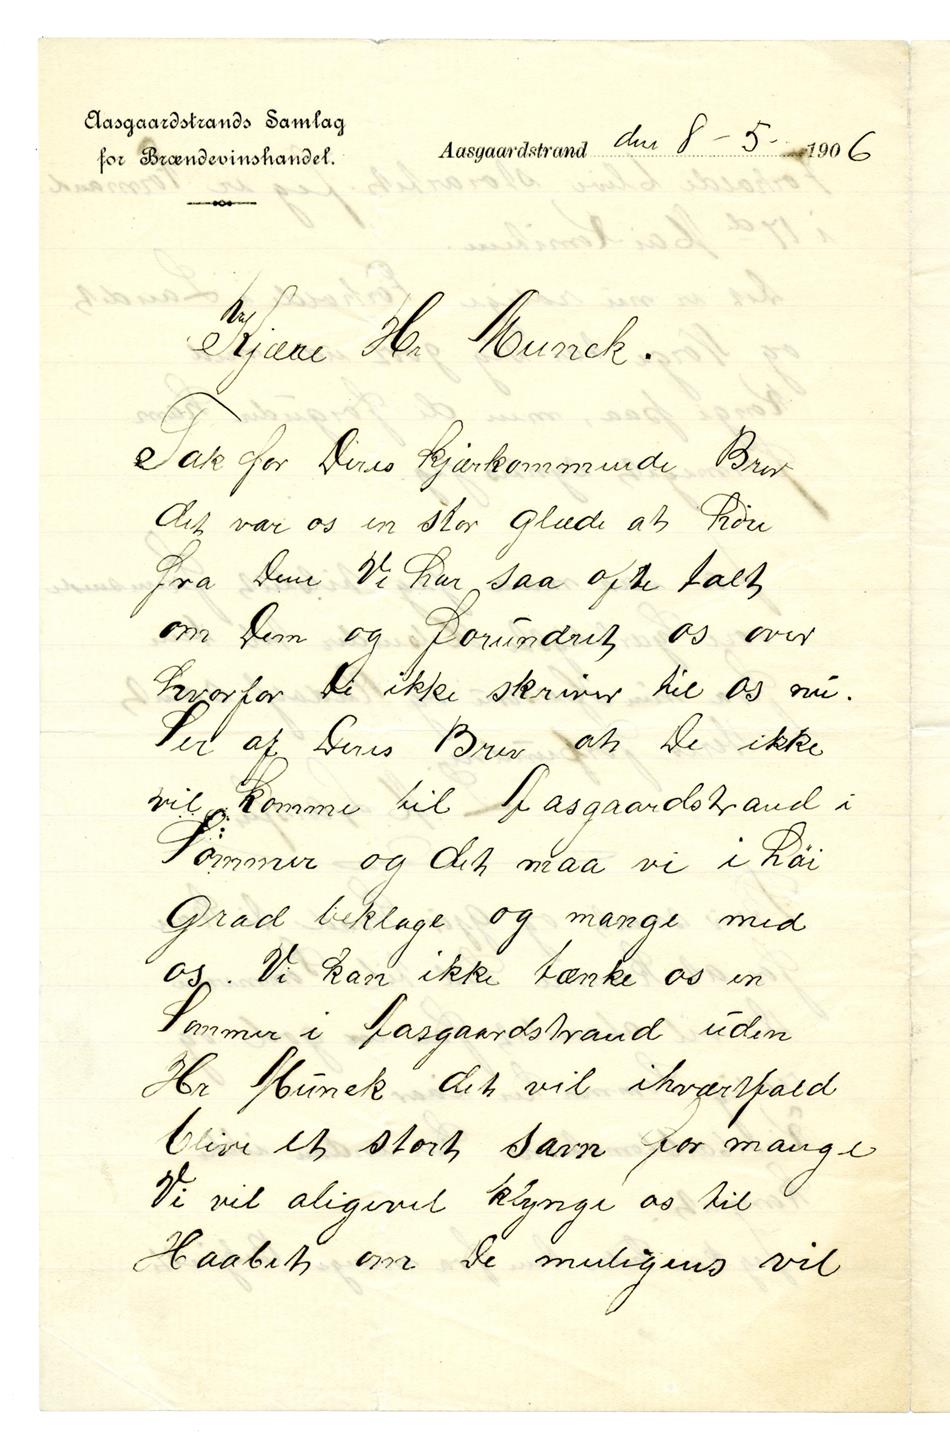 Aasgaardstrands Samlag
for Brændevinshandel.
Aasgaardstrand den 8 - 5 - 1906
Kjære Hr Munck.
Tak for Deres kjærkommende Brev
det var os en stor glæde at höre
fra Dem Vi har saa ofte talt
om Dem og forundret os over
hvorfor De ikke skriver til os nu.
Ser af Deres Brev at De ikke
vil komme til Aasgaardstrand i
Sommer og det maa vi i höi
Grad beklage og mange med
os. Vi kan ikke tænke os en
Sommer i Aasgaardstrand uden
Hr Munck det vil ihværtfald
blive et stort savn for mange
Vi vil aligevel klynge os til
Haabet om De muligens vil